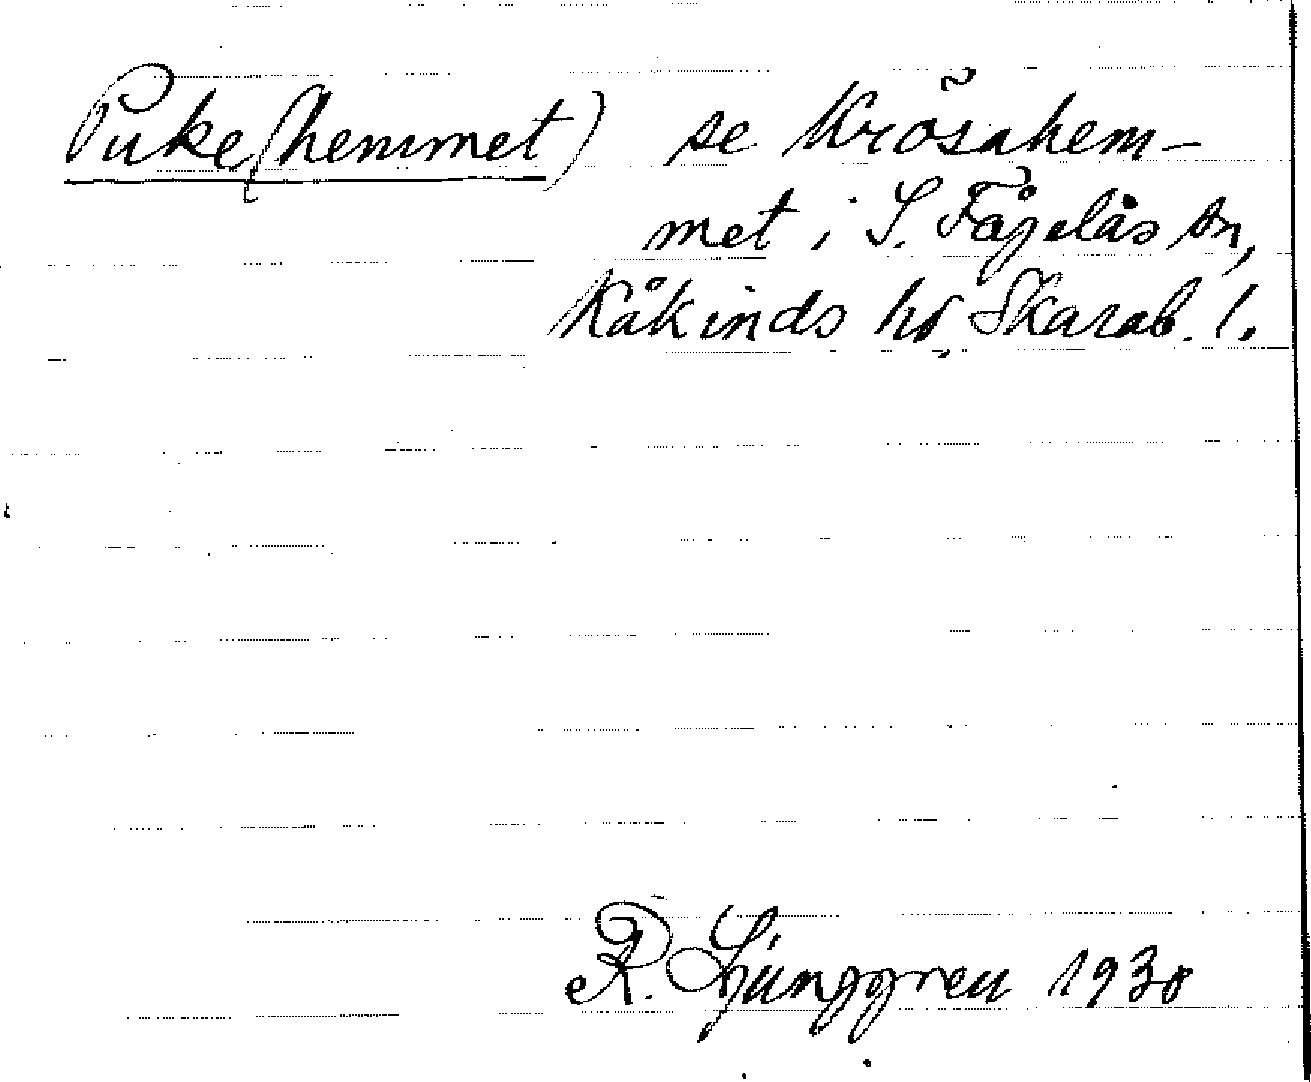 Puke(hemmet) se Krösahem-
met i S. Fågelås sn,
Kåkinds hd, Skarab. l.
R. Ljunggren 1930